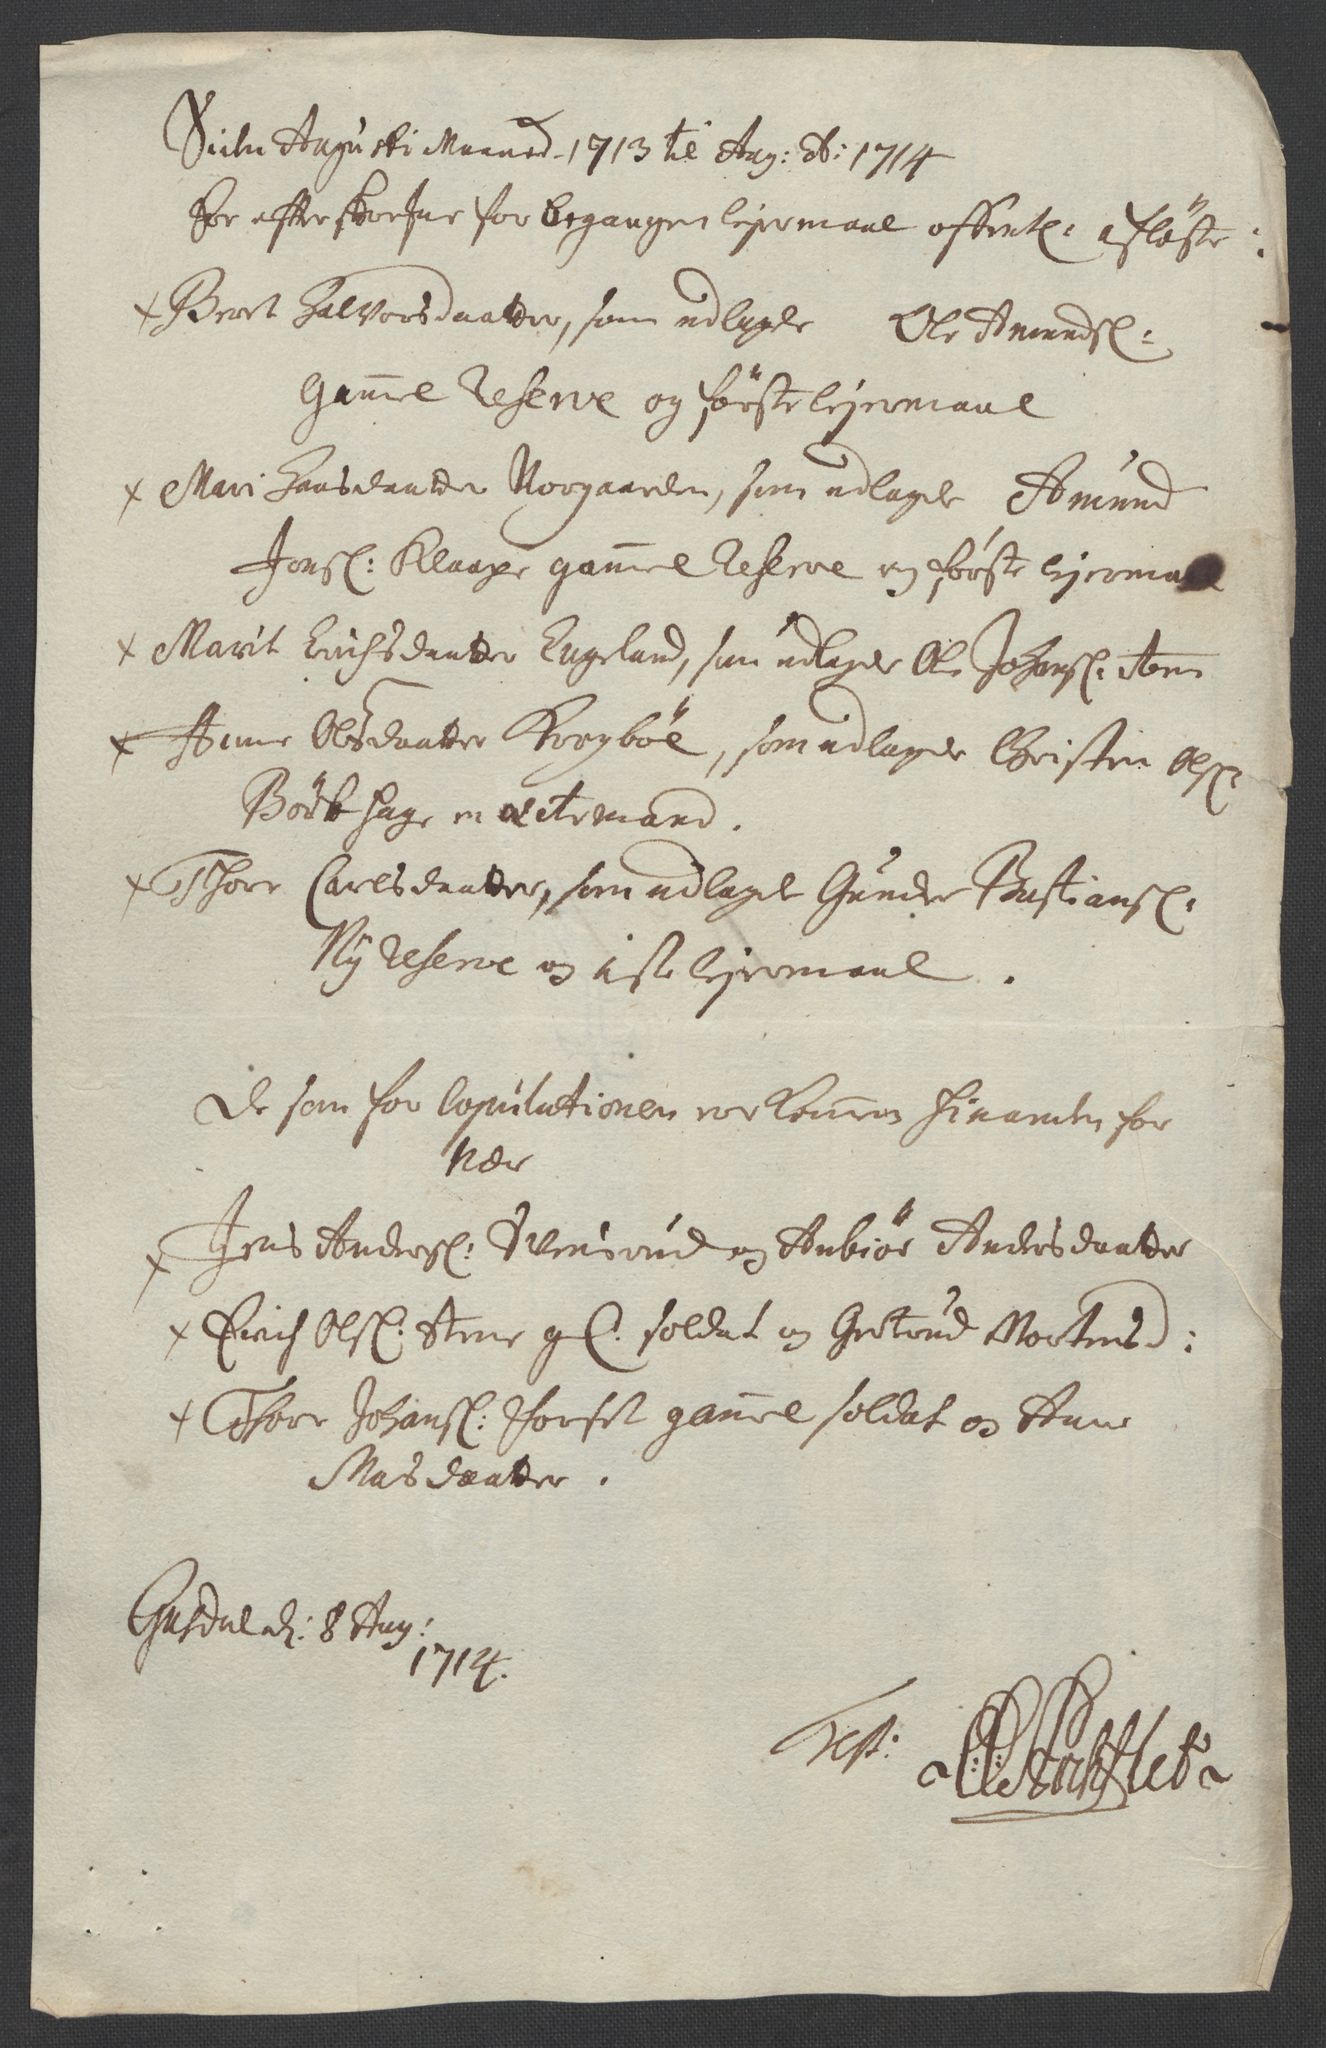 Siden Augusti Maaned 1713 til Aug: A: 1714
Er efterskrefne for begangen lejermaal offentl: afløste:
+ Beret Halvorsdaatter, som udlagde Ole Amundsl:
Gam̅el Reserve og første lejermaal
+ Mari Hansdaatter Norgaarden, som udlagde Amund
Jonsl: Klaape gam̅el Reserve og første lejermaal
+ Marit Erichsdaatter Engeland, som udlagde Ole Johansl: Steen
+ Anne Olsdaatter Krogböe, som udlagde Christen Olsl:
hage en ectemand.
+ Thore Carlsdaatter, som udlagde Gunder Bastiansl:
Ny Reserve og 1ste lejermaal.
De som for Copulationen ere kom̅en hinanden for
nær
+ Jens Andersl: Svensrud og Anbiör Andersdaatter
+ Erich Olsl: Stene gl. soldat og Gertrud Mortensd:
+ Thore Johansl: Forset gam̅el soldat og Anne
Masdaatter.
Gusdal d: 8 Aug:
1714.
Test: Stockflet